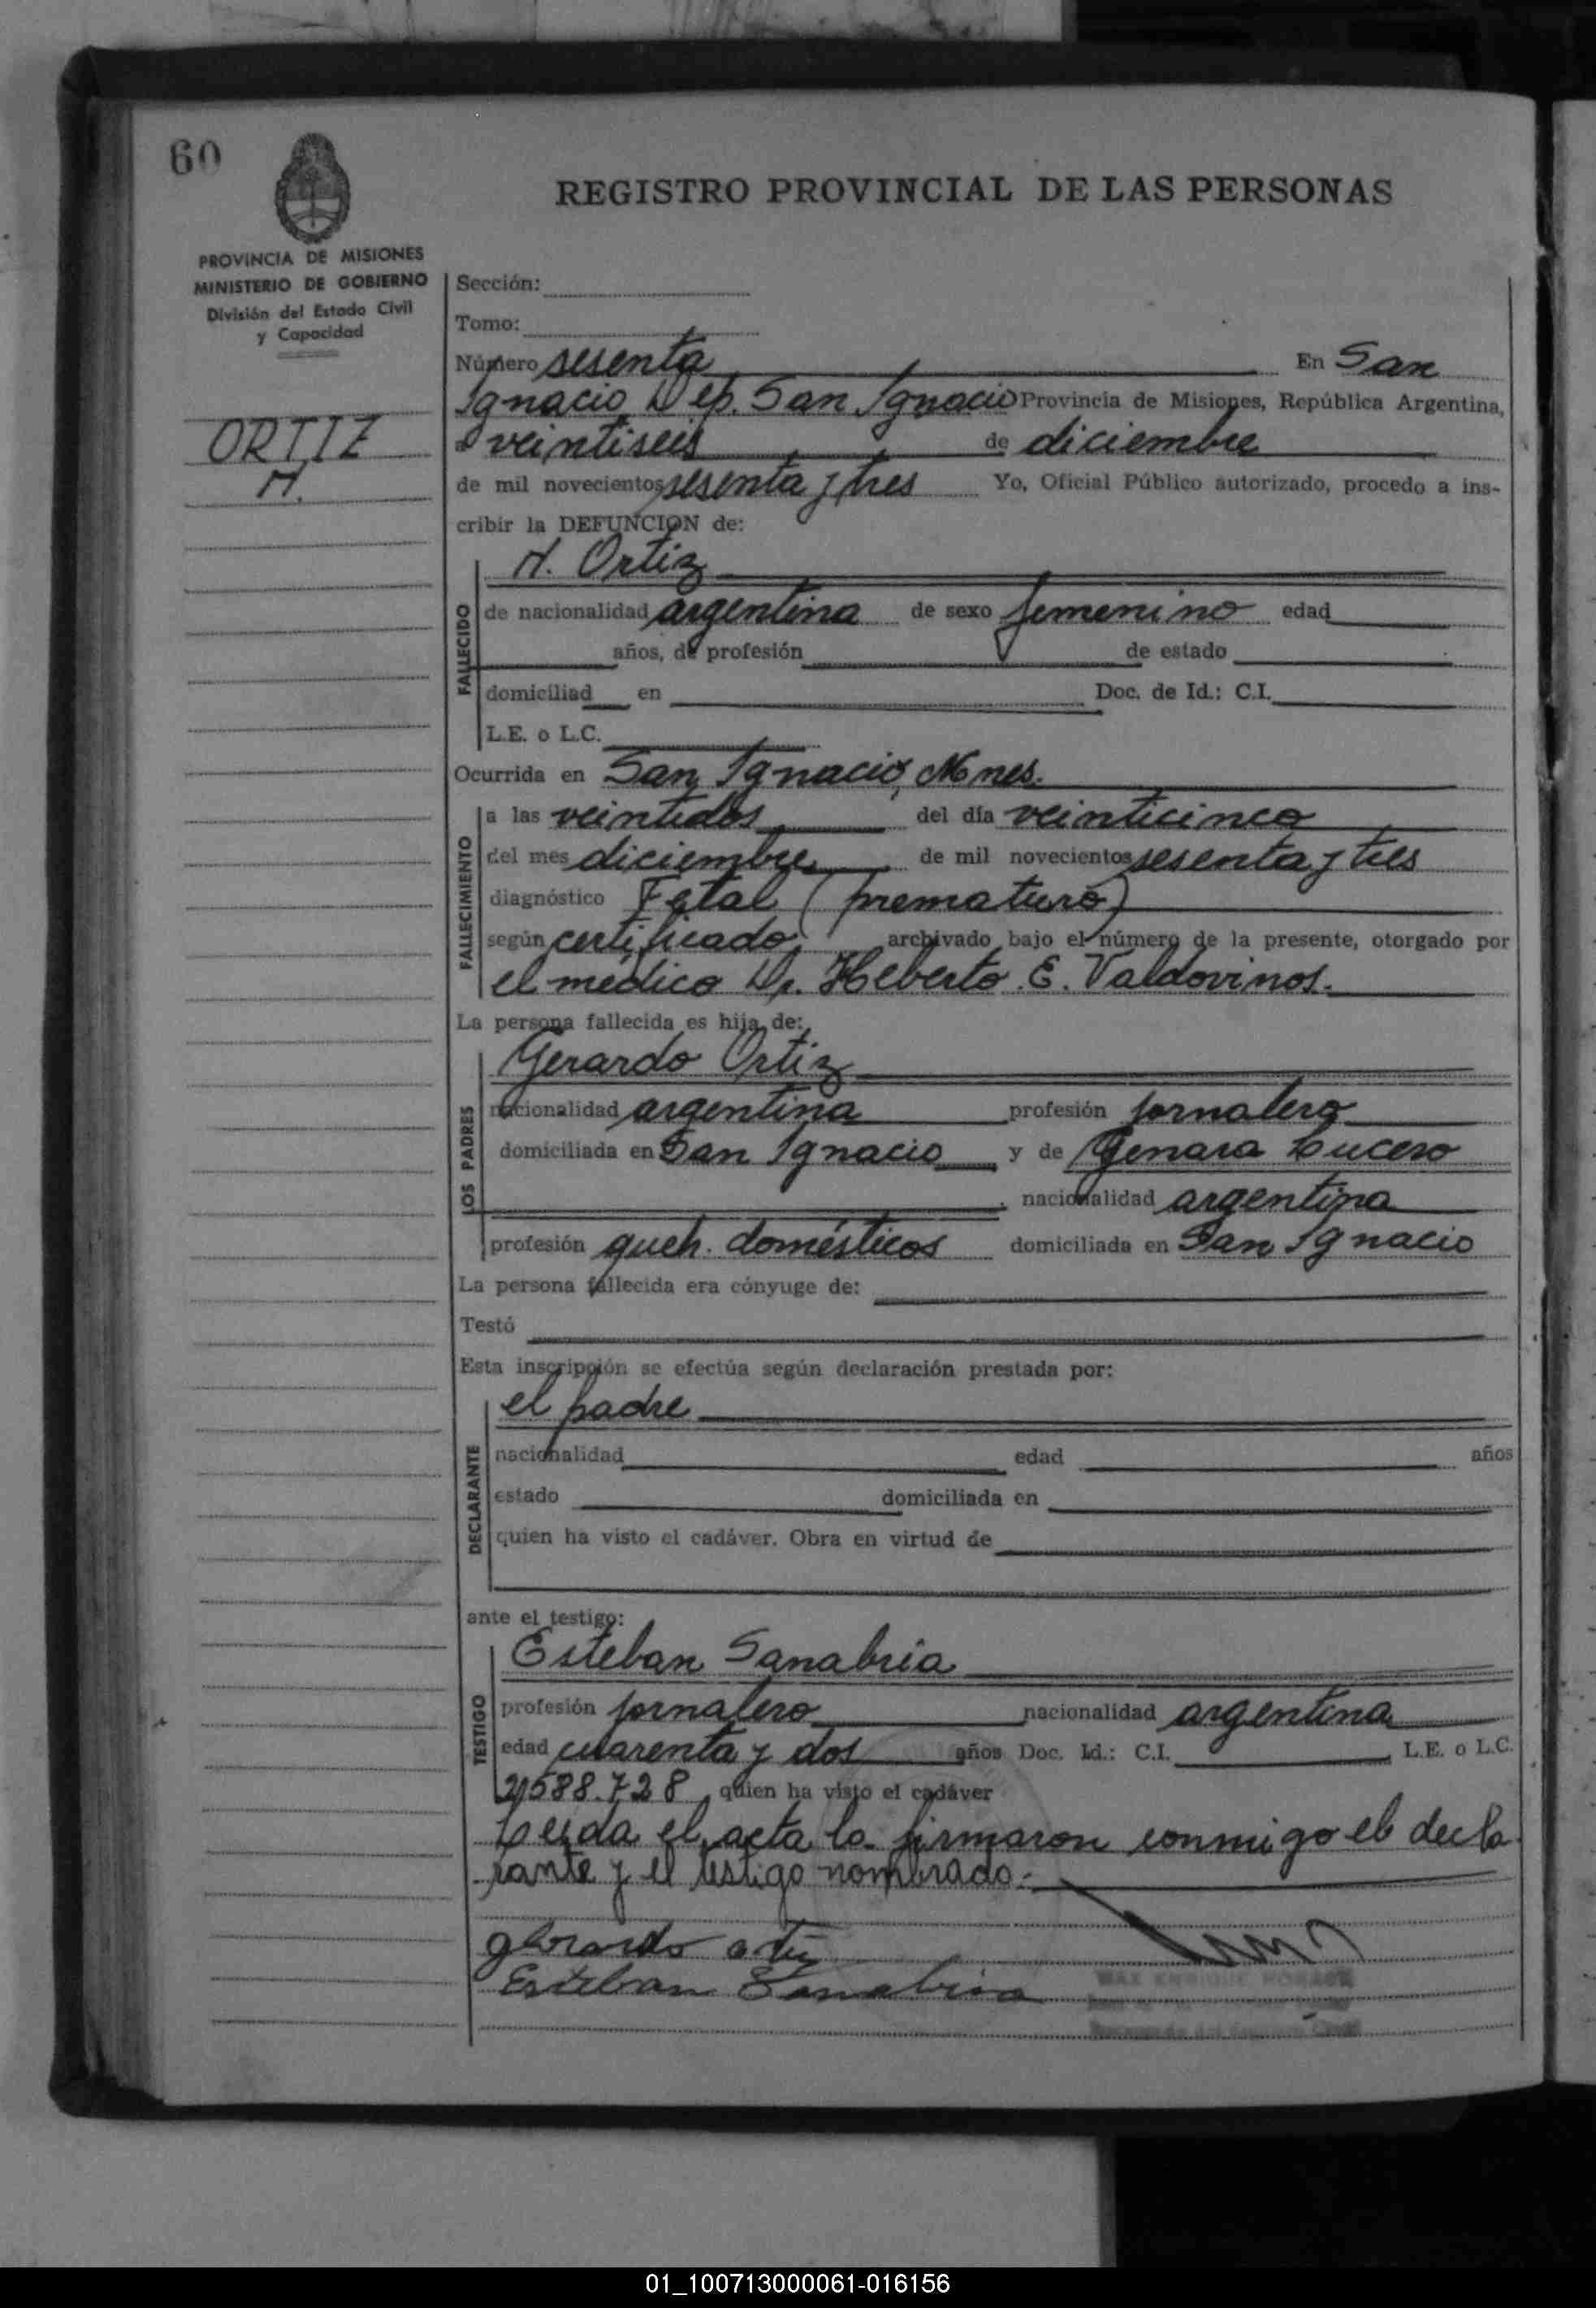 60
REGISTRO PROVINCIAL DE LAS PERSONAS
PROVINCIA DE MISIONES
MINISTERIO DE GOBIERNO
División del Estado Civil
y Capacidad
ORTIZ
N.
Sección:
Tomo:
Número sesenta En San
Ignacio, Dep. San Ignacio Provincia de Misiones, República Argentina,
a veintiseis de diciembre
de mil novecientos sesenta y tres Yo, Oficial Público autorizado, procedo a ins-
cribir la DEFUNCION de:
N. Ortiz
FALLECIDO
de nacionalidad argentina de sexo femenino edad
años, de profesión de estado
domiciliad en Doc. de Id.: C.I.
L.E. o L.C.
Ocurrida en San Ignacio, Mnes.
FALLECIMIENTO
a las veintidos del día veinticinco
del mes diciembre de mil novecientos sesenta y tres
diagnóstico Fetal (prematuro)
según certificado, archivado bajo el número de la presente, otorgado por
el médico Dr. Heberto E. Valdovinos.
La persona fallecida es hija de:
LOS PADRES
Gerardo Ortiz
nacionalidad argentina profesión jornalero
domiciliada en San Ignacio y de Genara Lucero
nacionalidad argentina
profesión queh. domésticos domiciliada en San Ignacio
La persona fallecida era cónyuge de:
Testó
Esta inscripción se efectúa según declaración prestada por:
DECLARANTE
el padre
nacionalidad edad años
estado domiciliada en
quien ha visto el cadáver. Obra en virtud de
ante el testigo:
TESTIGO
Esteban Sanabria
profesión jornalero nacionalidad argentina
edad cuarenta y dos años Doc. Id.: C.I. L.E. o L.C.
588.728, quien ha visto el cadáver
Leida el acta la firmaron conmigo el decla
rante y el testigo nombrado.-
Esteban Sanabria
MAX ENRIQUE
01_100713000061-016156